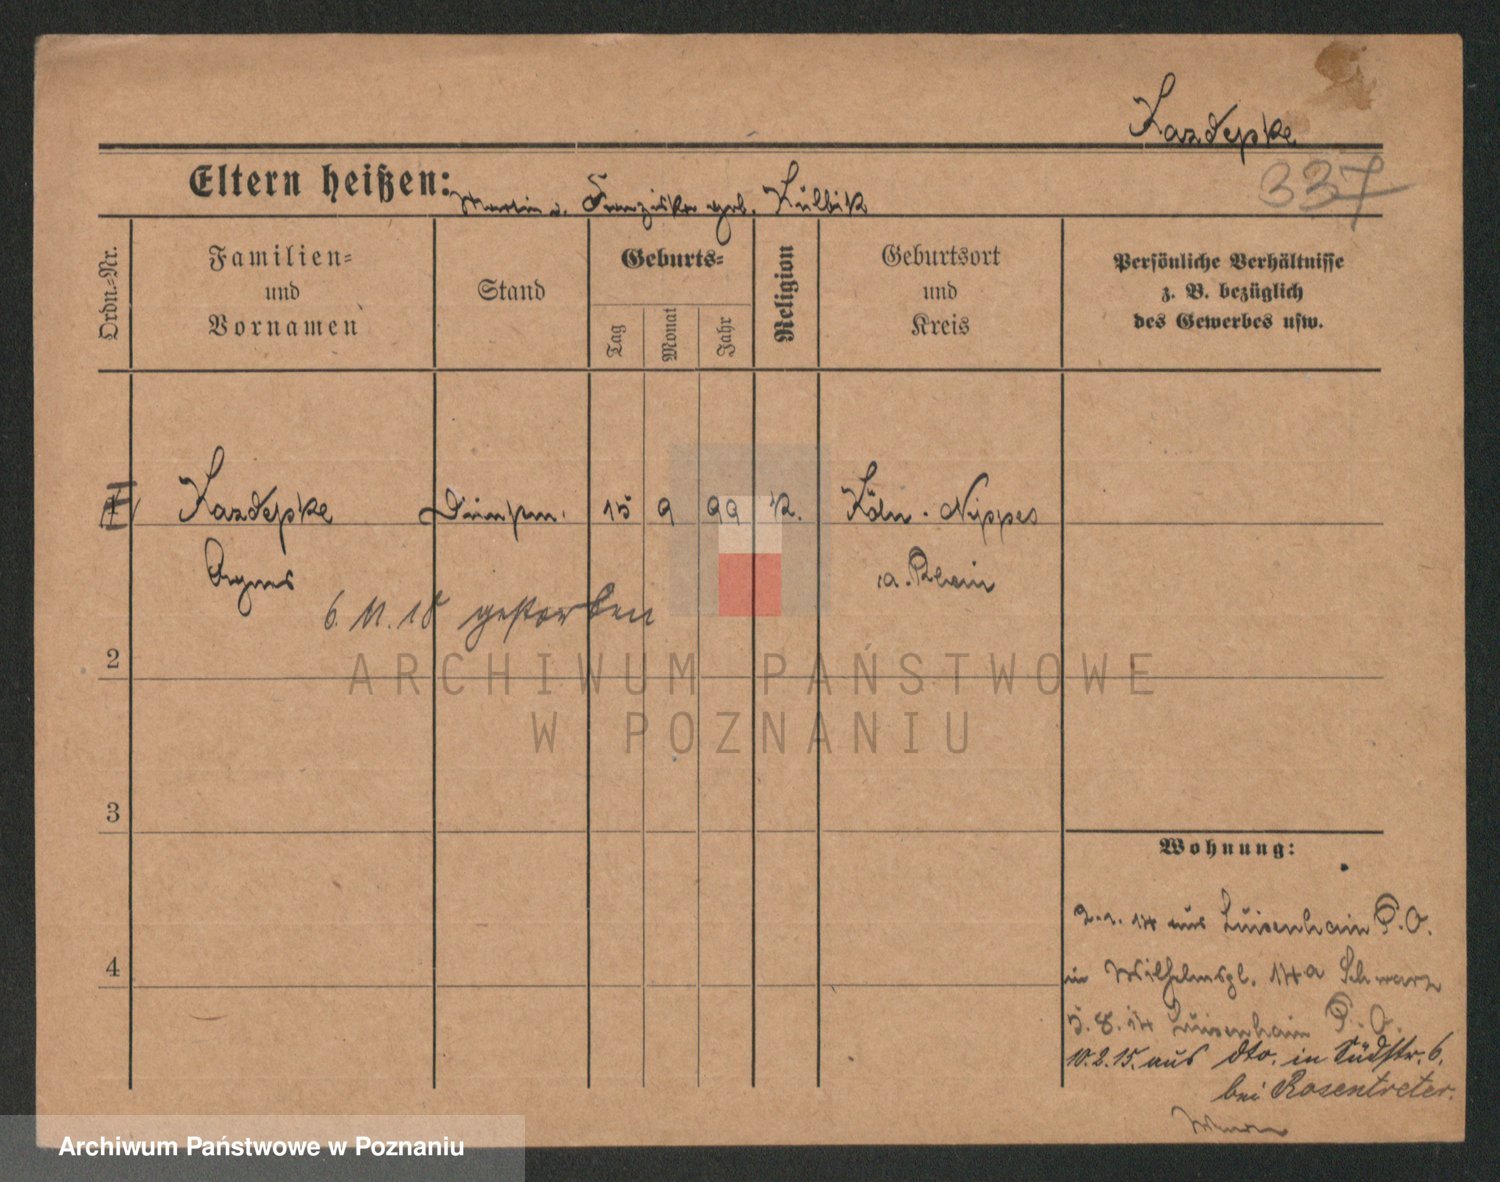 Kazdepke
337
Eltern heißen: Martin u. Franziska geb. Kulbik
Ordn.-Nr.
Familien-
und
Vornamen
Stand
Geburts-
Tag
Monat
Jahr
Religion
Geburtsort
und
Kreis
Persönliche Verhältnisse
z. B. bezüglich
des Gewerbes usw.
1 Kazdepke 15 9 99 K. Köln - Nippes
Agnes a. Rhein
6. 11. 18 gestorben
2
ARCHIWUM PAŃSTWOWE
W POZNANIU
3
Wohnung:
4
2. 1. 14 aus Luisenhain P. O.
in Wilhelmspl. 14a Schwarz
5. 8. 14 Luisenhain P. O.
10. 2. 15. aus dto. in Südstr. 6.
bei Rosentreter.
Archiwum Państwowe w Poznaniu